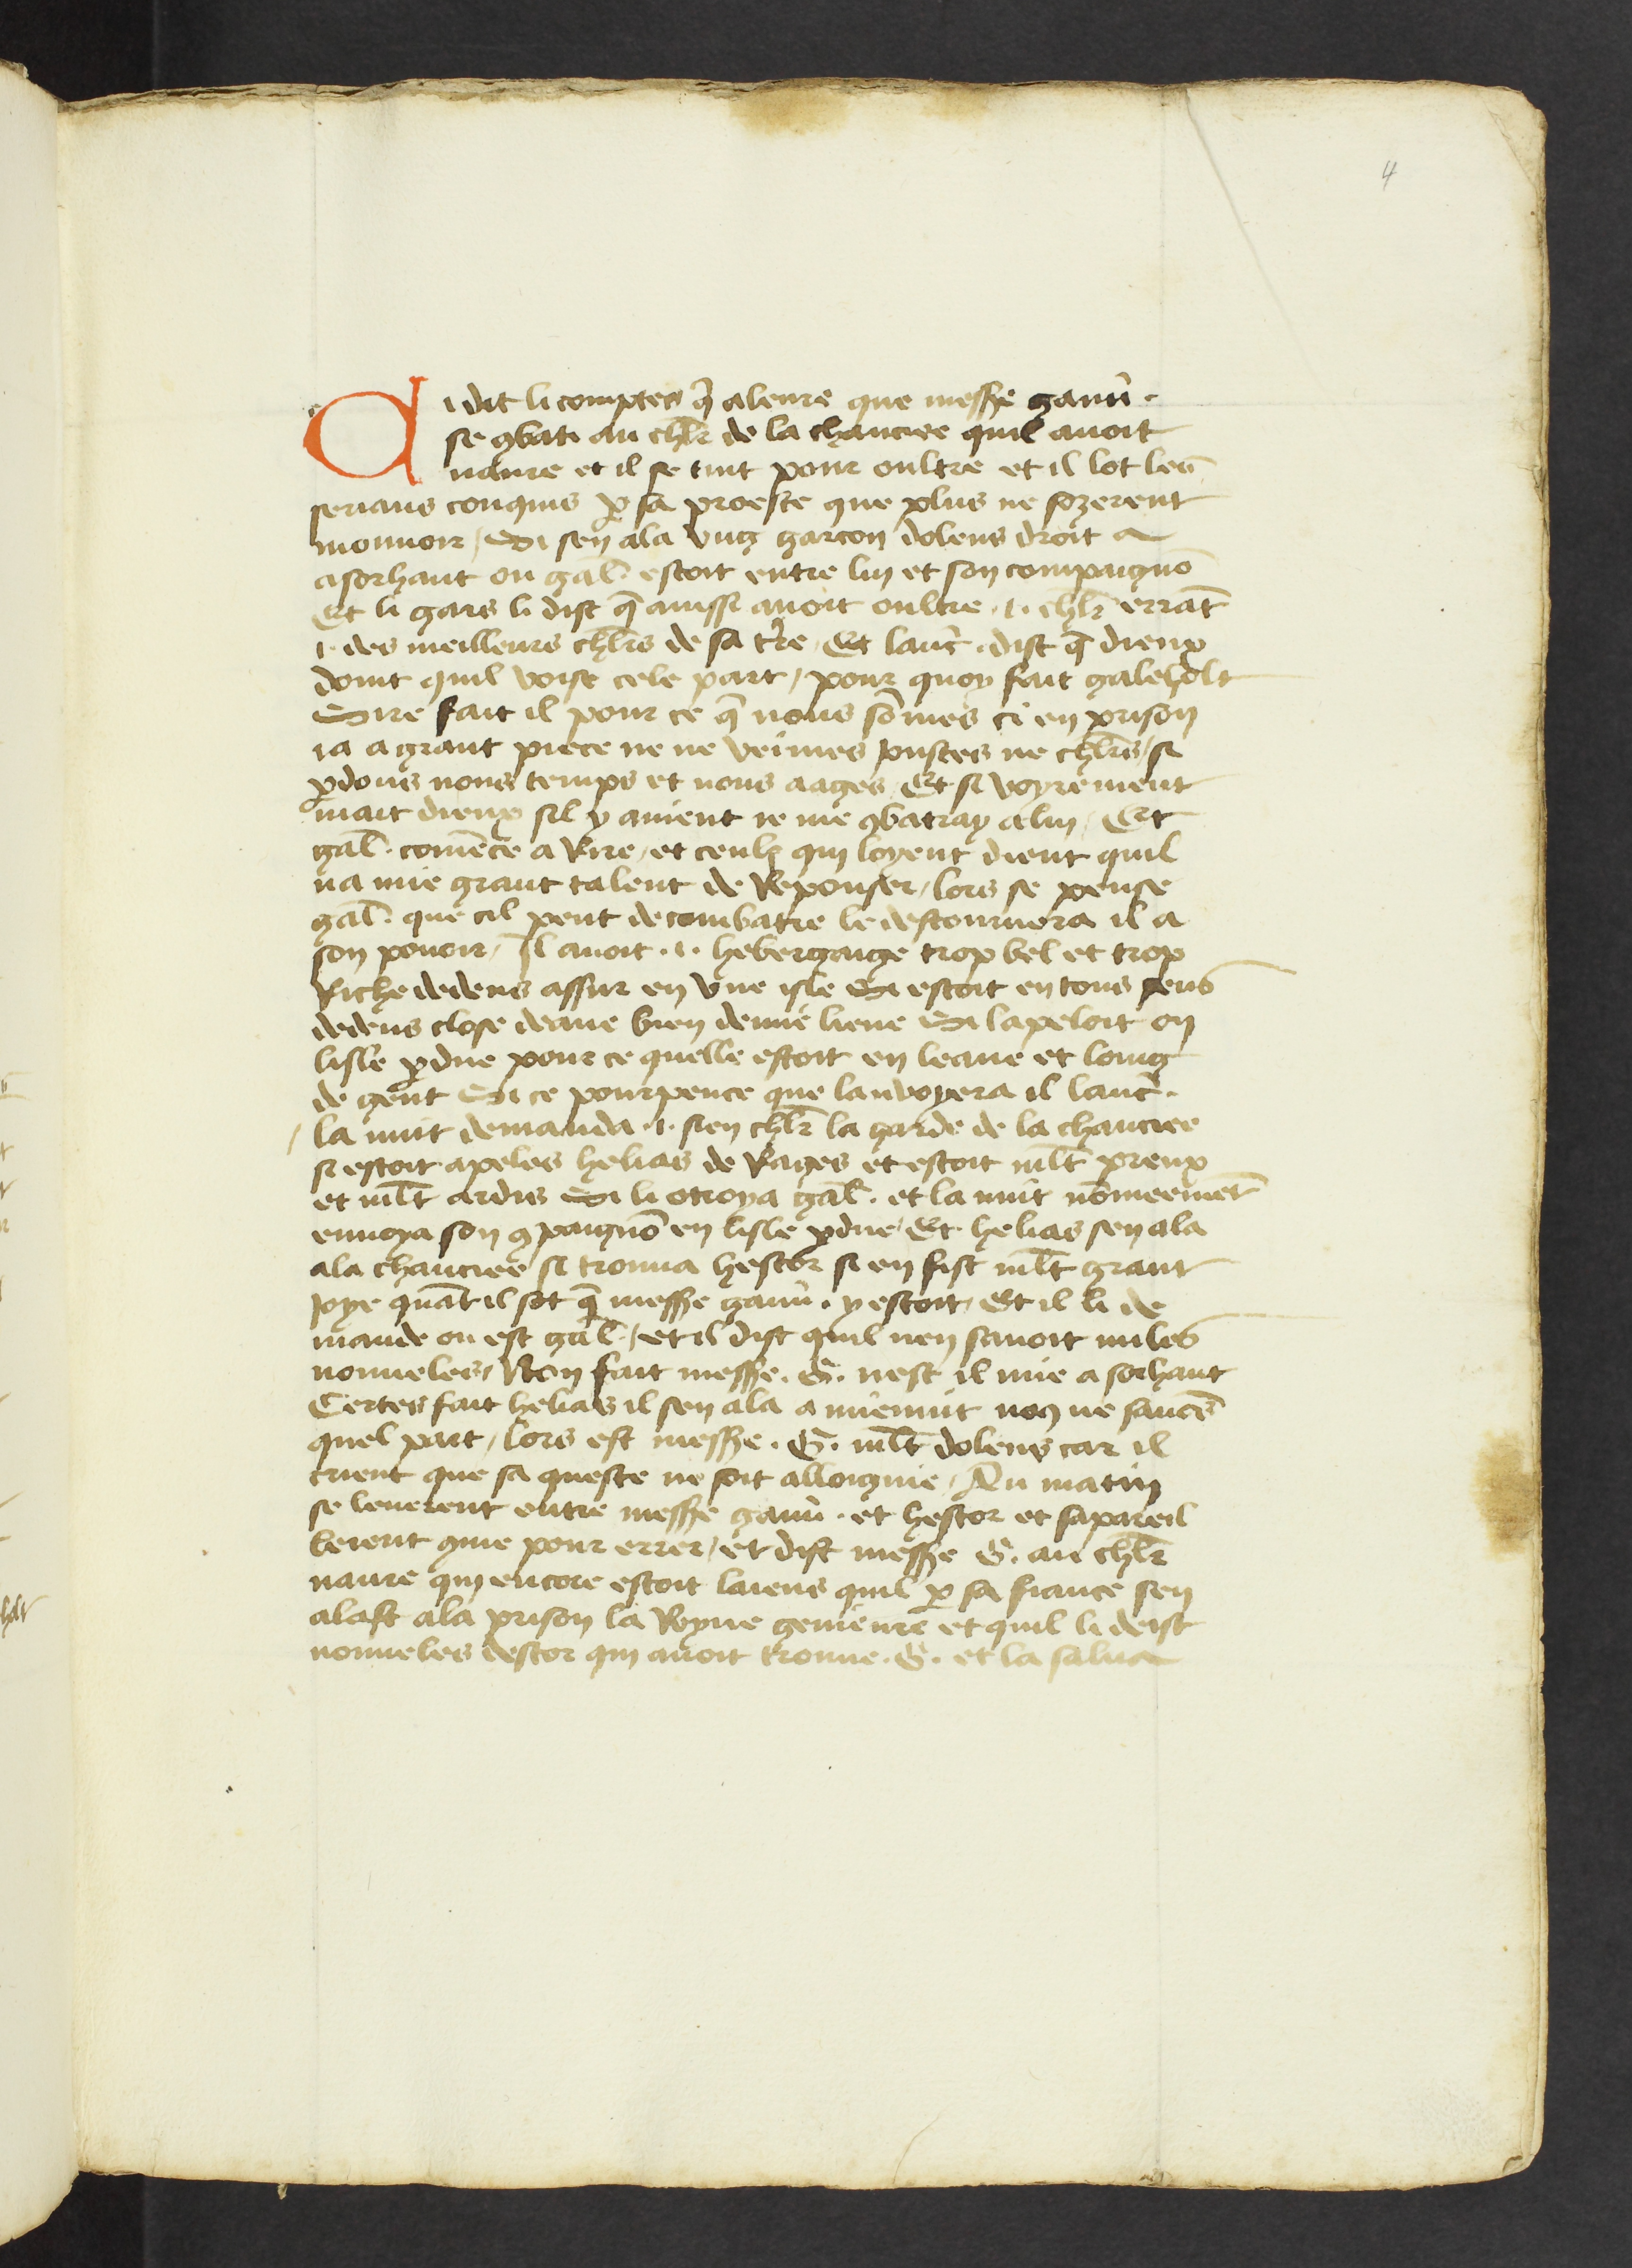 4
Ci dit li comptes q̃ aleure que messire gauũ .
se ꝯbati au chlr̃ de la chauciee quil auoit
naure et il se tint pour oultre et il lot les
serians conquis ꝑ sa proesce que plus ne sozerent
mouuoir / Si sen ala vng garcon dolens droit a
asorhaut ou gal̃ . estoit entre luy et son compaignõ
Et li gars li dist q̃ aussi auoit oultre . i . chlr̃ errãt
i . des meilleurs chlr̃s de sa tr̃re / Et lanc̃ . dist q̃ dieux
doint quil voise cele part / pour quoy fait galeholt
Sire fait il pour ce q̃ nous sõmes ci en prison
ia a grant piece ne ne veimes Joustes ne chlr̃s / si
ꝑdons nous temps et nous aages / Et si voyrement
mait dieux sil y auient ie me ꝯbatray a luy / Et
gal̃ . comẽce a Rire / et ceulx qui loyent dient quil
na mie grant talent de Reposer / lors se pense
gal̃ . que cil peut de combatre le destournera il a
son pouoir / Il auoit . i . hebergaige trop bel et trop
Riche dedens assur en vne isle Si estoit en tous sens
dedens close deaue bien demie lieue Si lapeloit on
lisle ꝑdue pour ce quelle estoit en leaue et loing
de gent Si ce pourpence que la nvoyera il lanc̃ .
/ la nuit demanda . i . sien chlr̃ la garde de la chauciee
si estoit apeles helias de Rages et estoit mlt̃ preux
et mlt̃ ardis Si li otroya gal̃ . et la nuit nõmeemẽt
enuoya son ꝯpaignõ en lisle ꝑdue / Et helias sen ala
ala chauciee / si trouua hestor si en fist mlt̃ grant
Joye quãt il sot q̃ messire gauũ . y estoit / Et il li de
mande ou est gal̃ . / et il dist quil nen sauoit nules
nouueles / Non fait messire . G . nest il mie a sorhaut
Certes fait helias il sen ala a mienuit noꝯ ne sauõs
quel part / lors est messire . G . mlt̃ dolens car il
crient que sa queste ne soit alloignie / Au matin
se leuerent entre messire gauũ . et hestor et sapareil
lerent que pour errer / et dist messire G . au chlr̃
naure qui encore estoit laiens quil ꝑ sa fiance sen
alast ala prison la Royne genieure et quil li deist
nouueles destor qui auoit trouue . G . et la salua